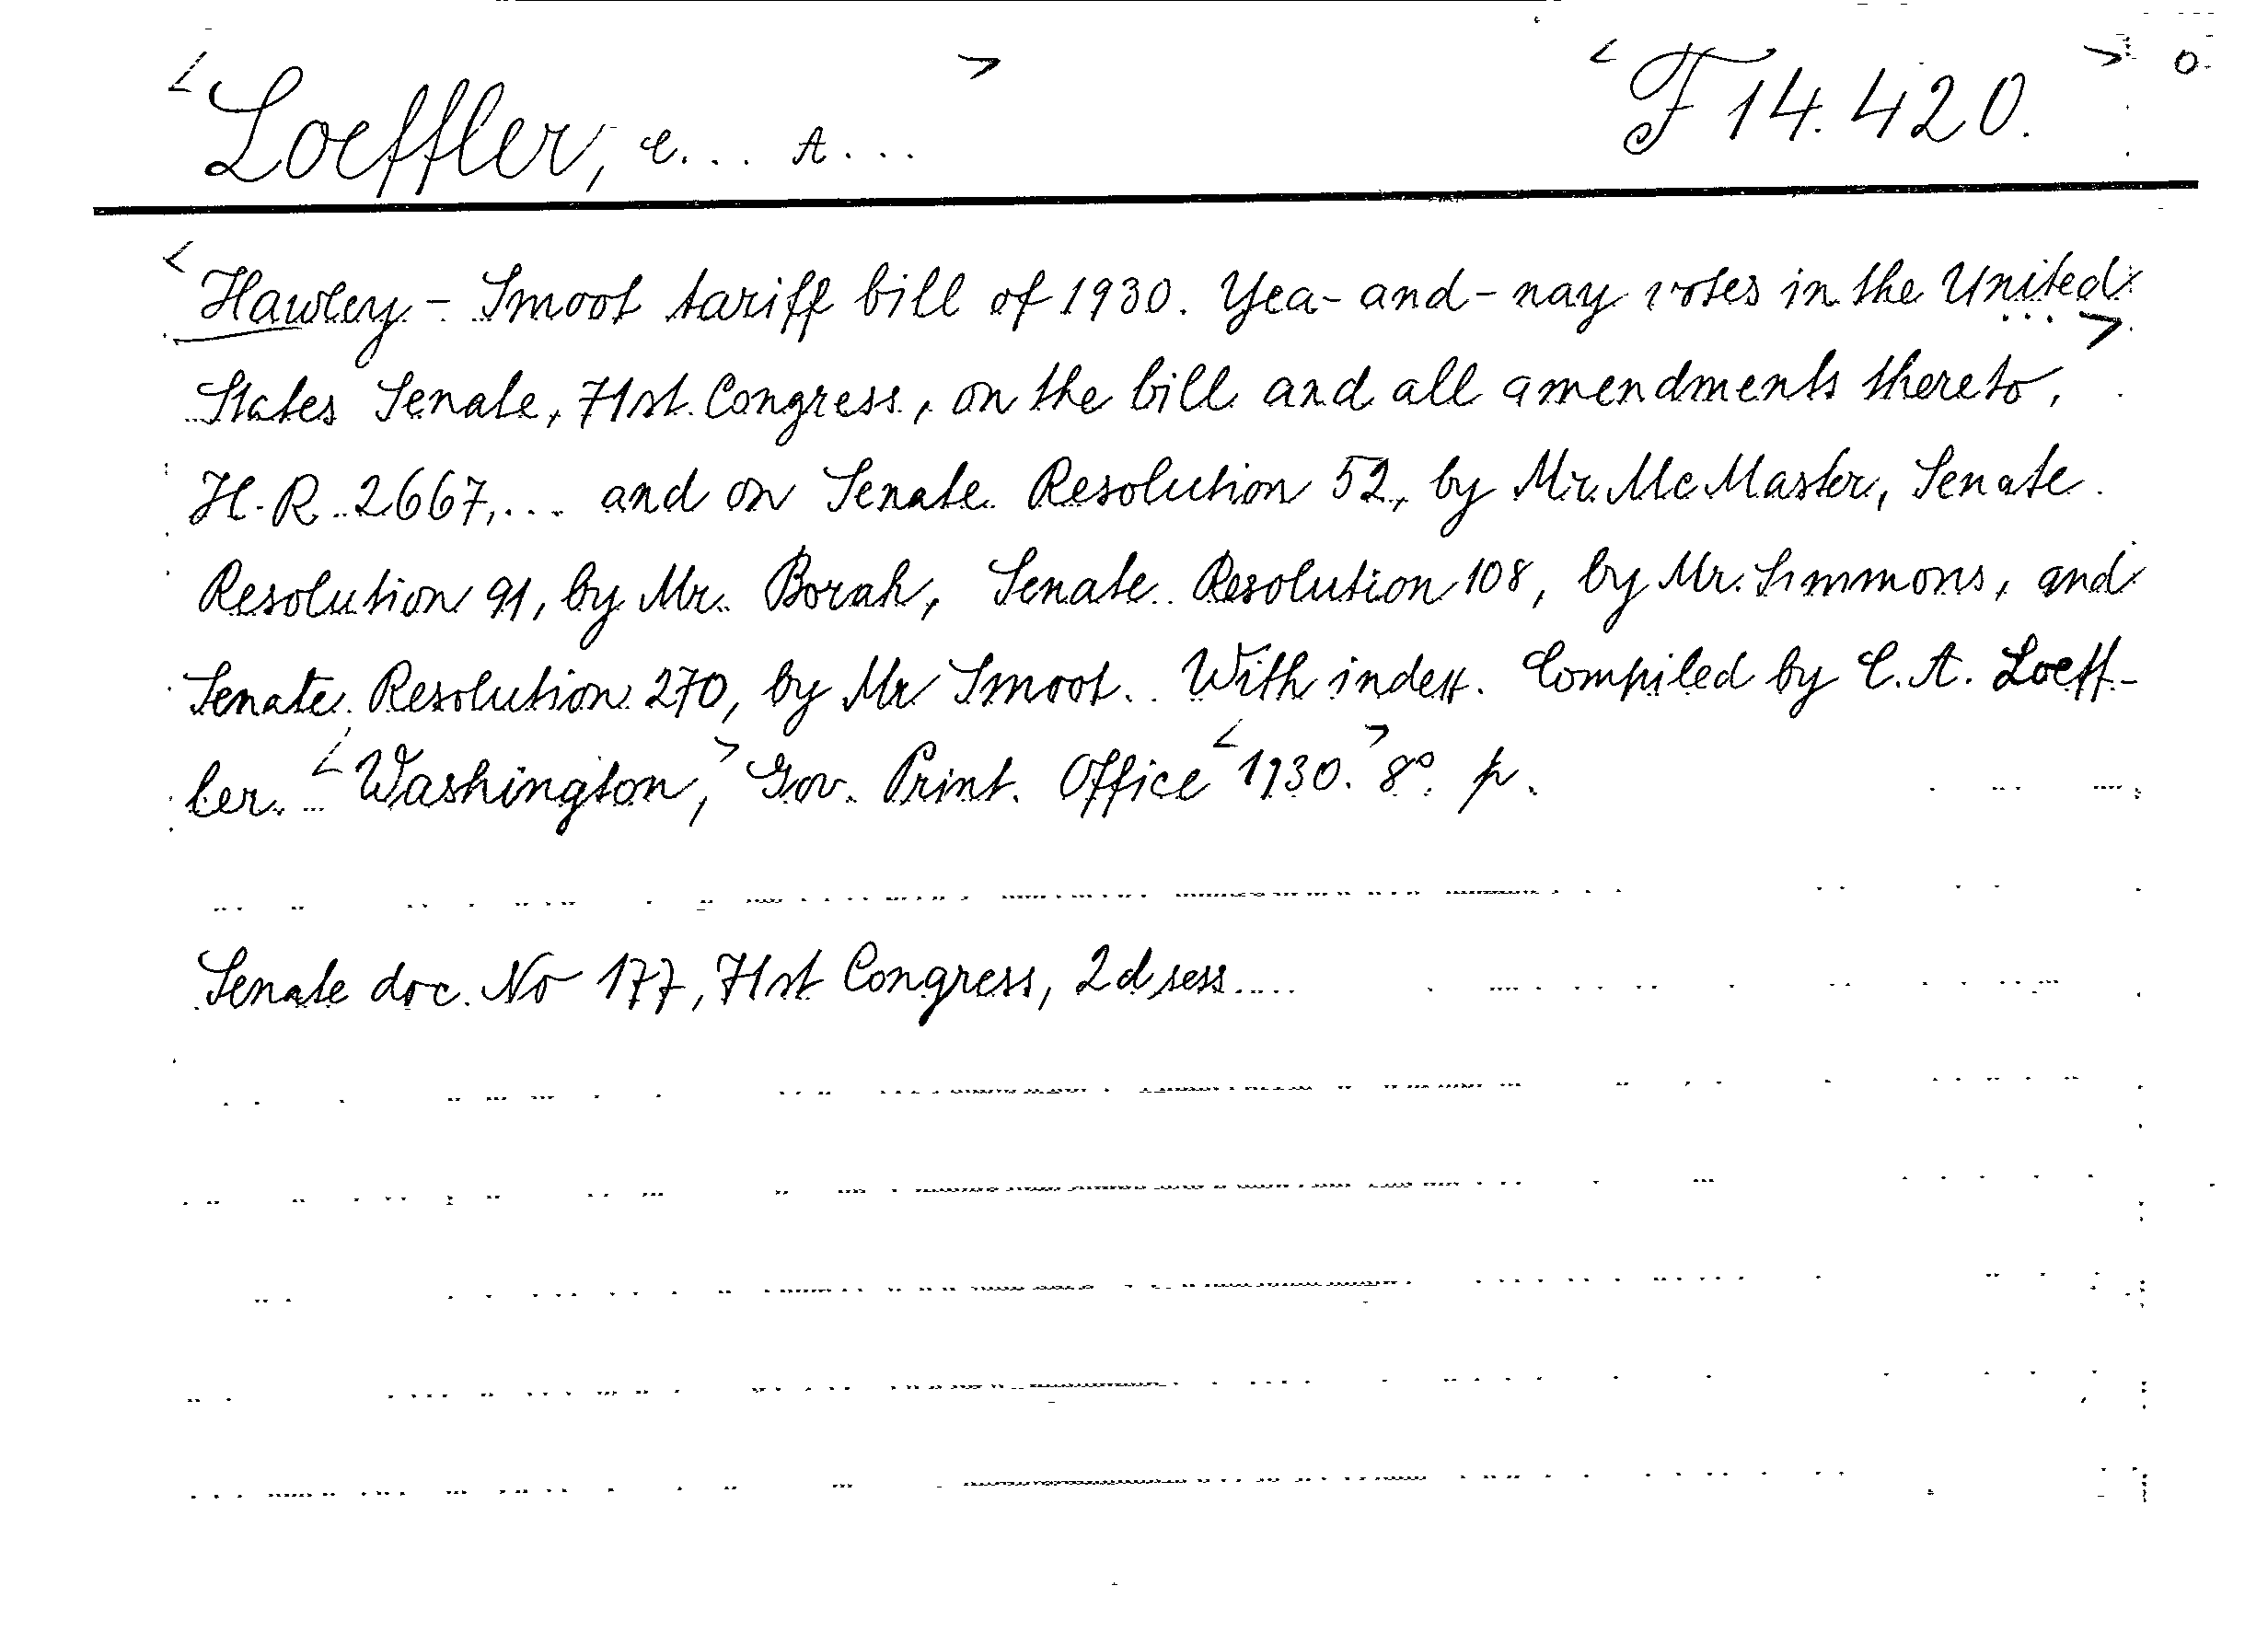 <Loeffler, C... A...> <F 14.420.> 0.
<Hawley - Smoot tariff bill of 1930. Yea-and-nay votes in the United...>
States Senate, 71st. Congress, on the bill and all amendments thereto,
H.R. 2667,... and on Senate Resolution 52, by Mr. McMaster, Senate
Resolution 91, by Mr. Borah, Senate Resolution 108, by Mr. Simmons, and
Senate Resolution 270, by Mr Smoot. With index. Compiled by C.A. Loeff-
ler. <Washington,> Gov. Print. Office <1930.> 8º. p.
Senate doc. No 177, 71st Congress, 2d sess....